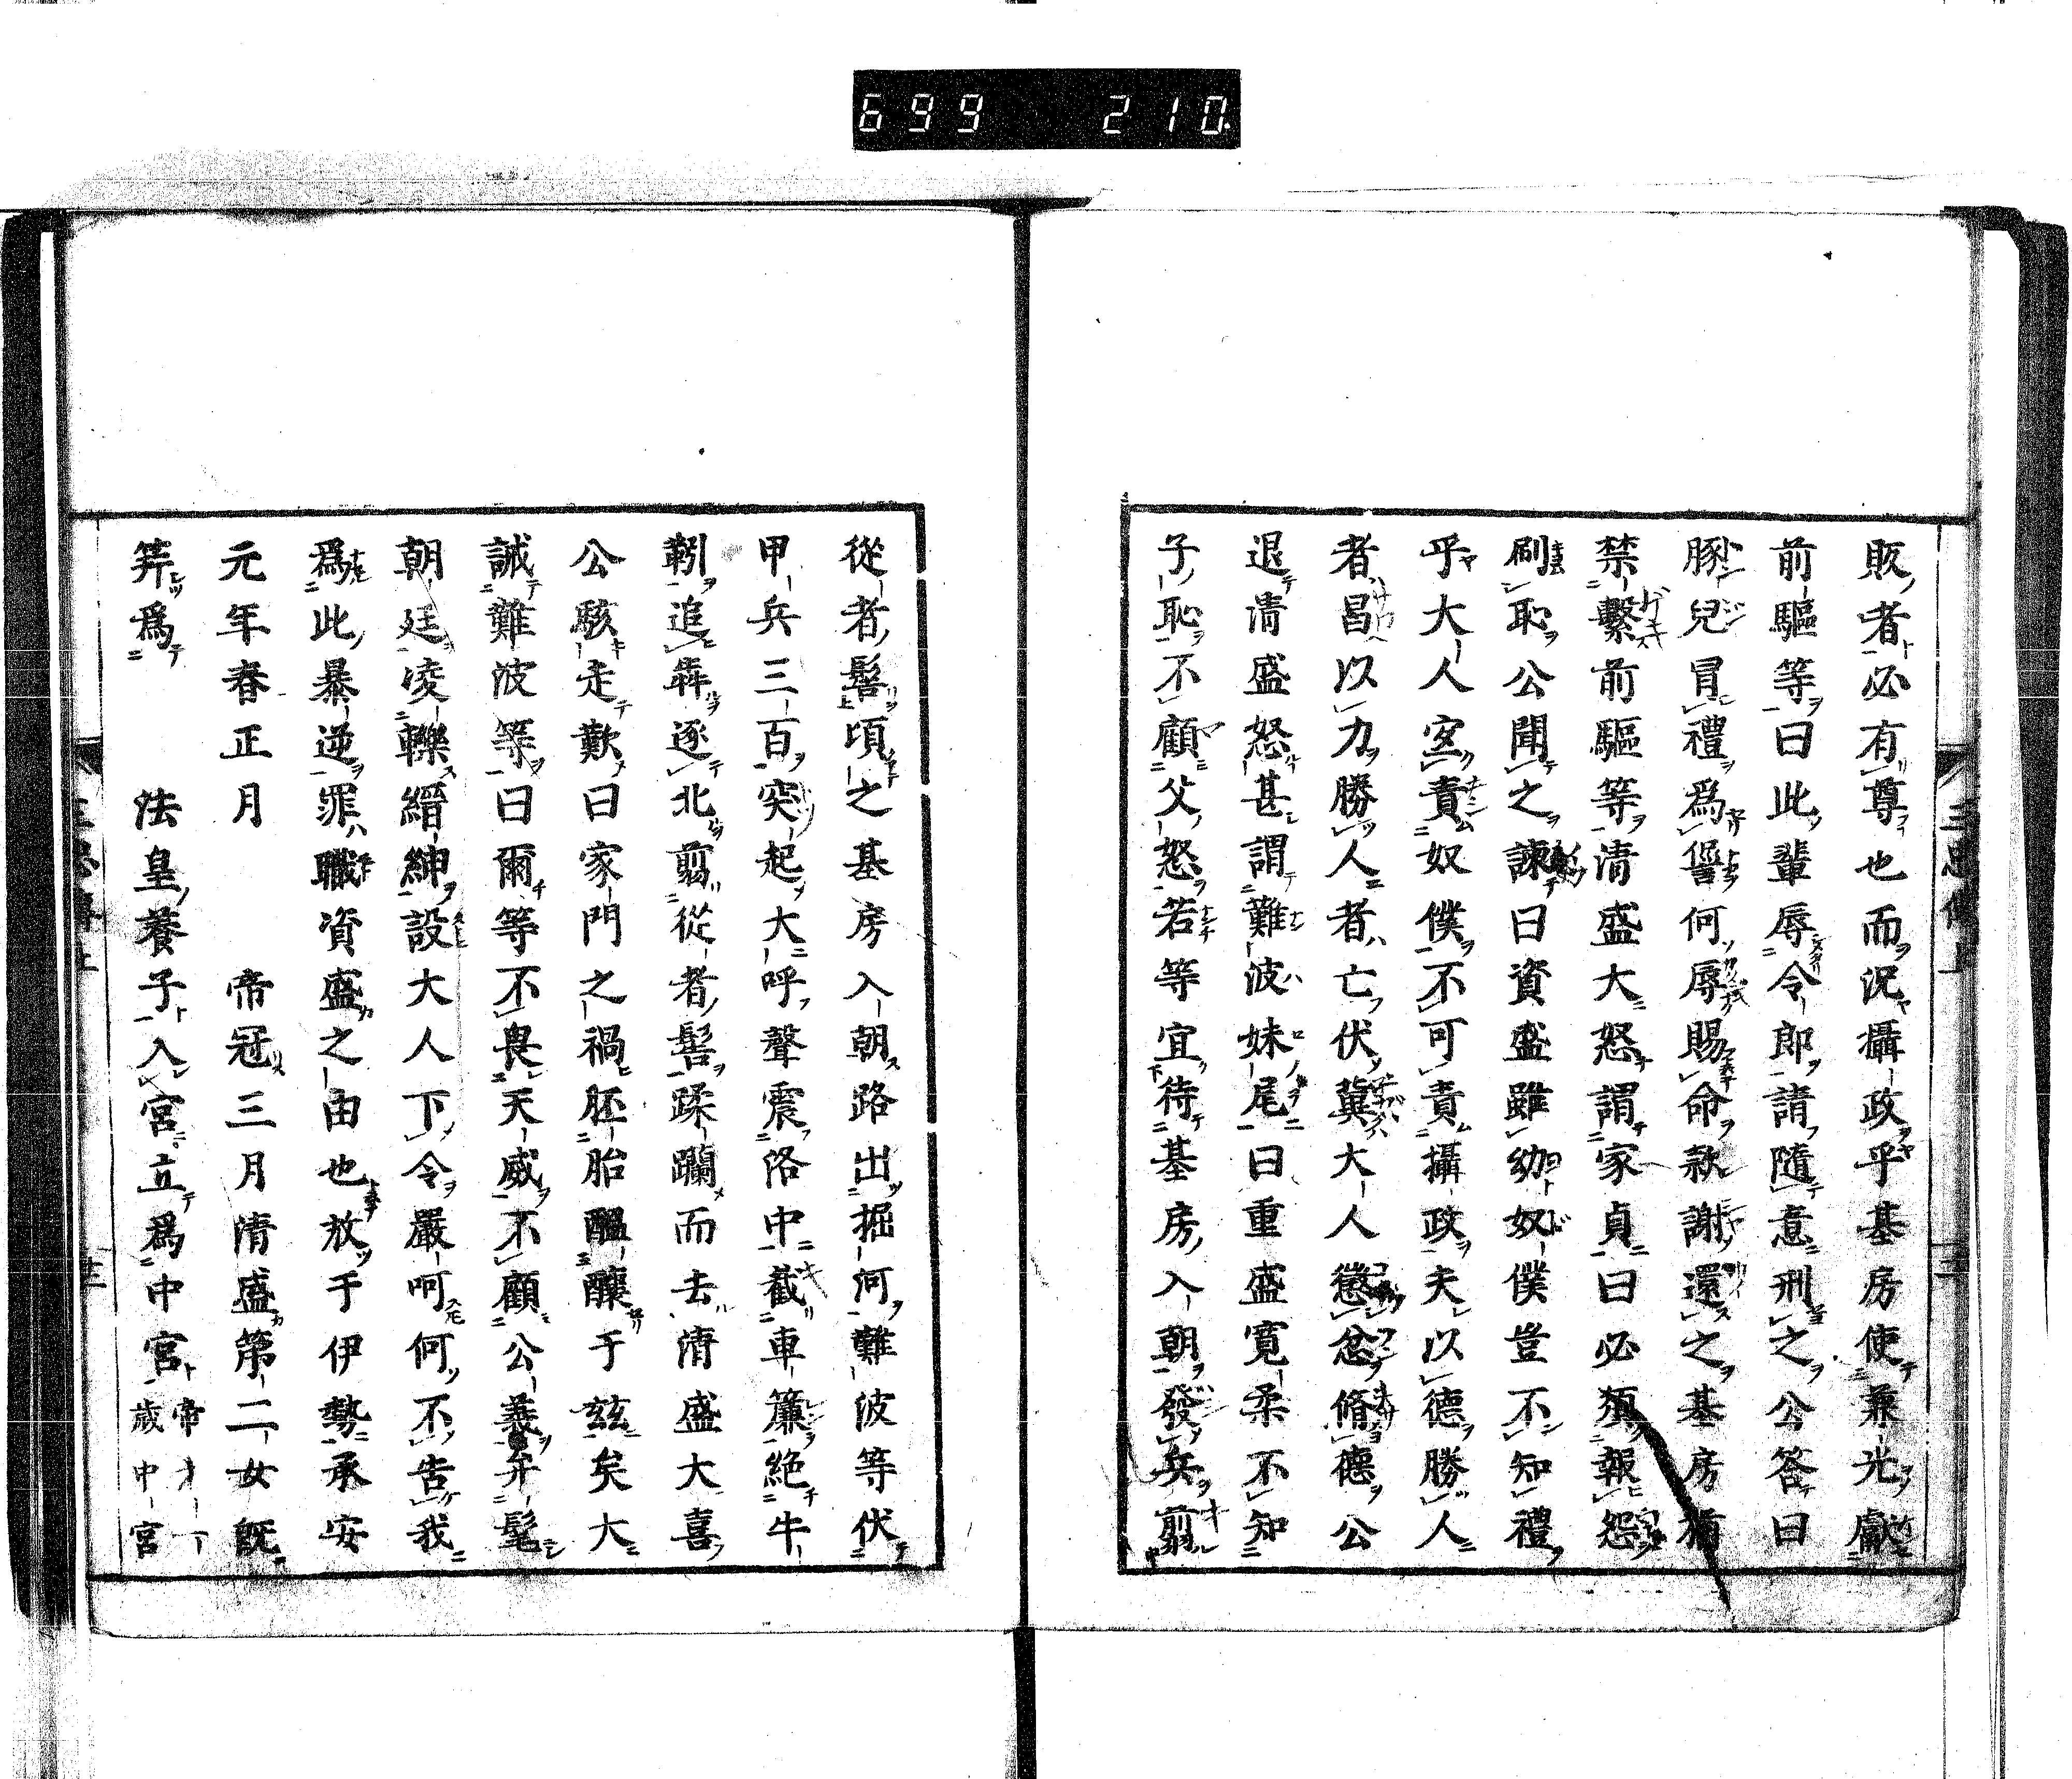 699 210
販者必有尊也而況攝政乎基房使兼光獻
前驅等曰此輩辱令郎請隨意刑之公答曰
豚兒冒禮爲何辱賜命款謝還之基房猶
禁繫前驅等清盛大怒謂家貞曰必須報怨
刷恥公聞之諫曰資盛雖幼奴僕豈不知禮
乎大人責奴僕不可責攝政夫以德勝人
者昌以力勝人者亡伏冀大人懲忿脩德公
退清盛怒甚謂難波妹尾曰重盛寬柔不知
子恥不顧父怒若等宜待基房入朝發兵翦
從者髻頃之基房入朝路出掘河難波等伏
甲兵三百突起大呼聲震洛中截車簾絕牛
靷追犇逐北翦從者髻蹂躪而去清盛大喜
公駭走歎曰家門之禍胚胎醞釀于茲矣大
誡難波等曰爾等不畏天威不顧公義弁髦
朝廷凌轢縉紳設大人下令嚴呵何不告我
爲此暴逆罪職資盛之由也放于伊勢承安
元年春正月 帝冠三月清盛第二女既
笄爲 法皇養子入宮立爲中宮帝才一
歲中宮